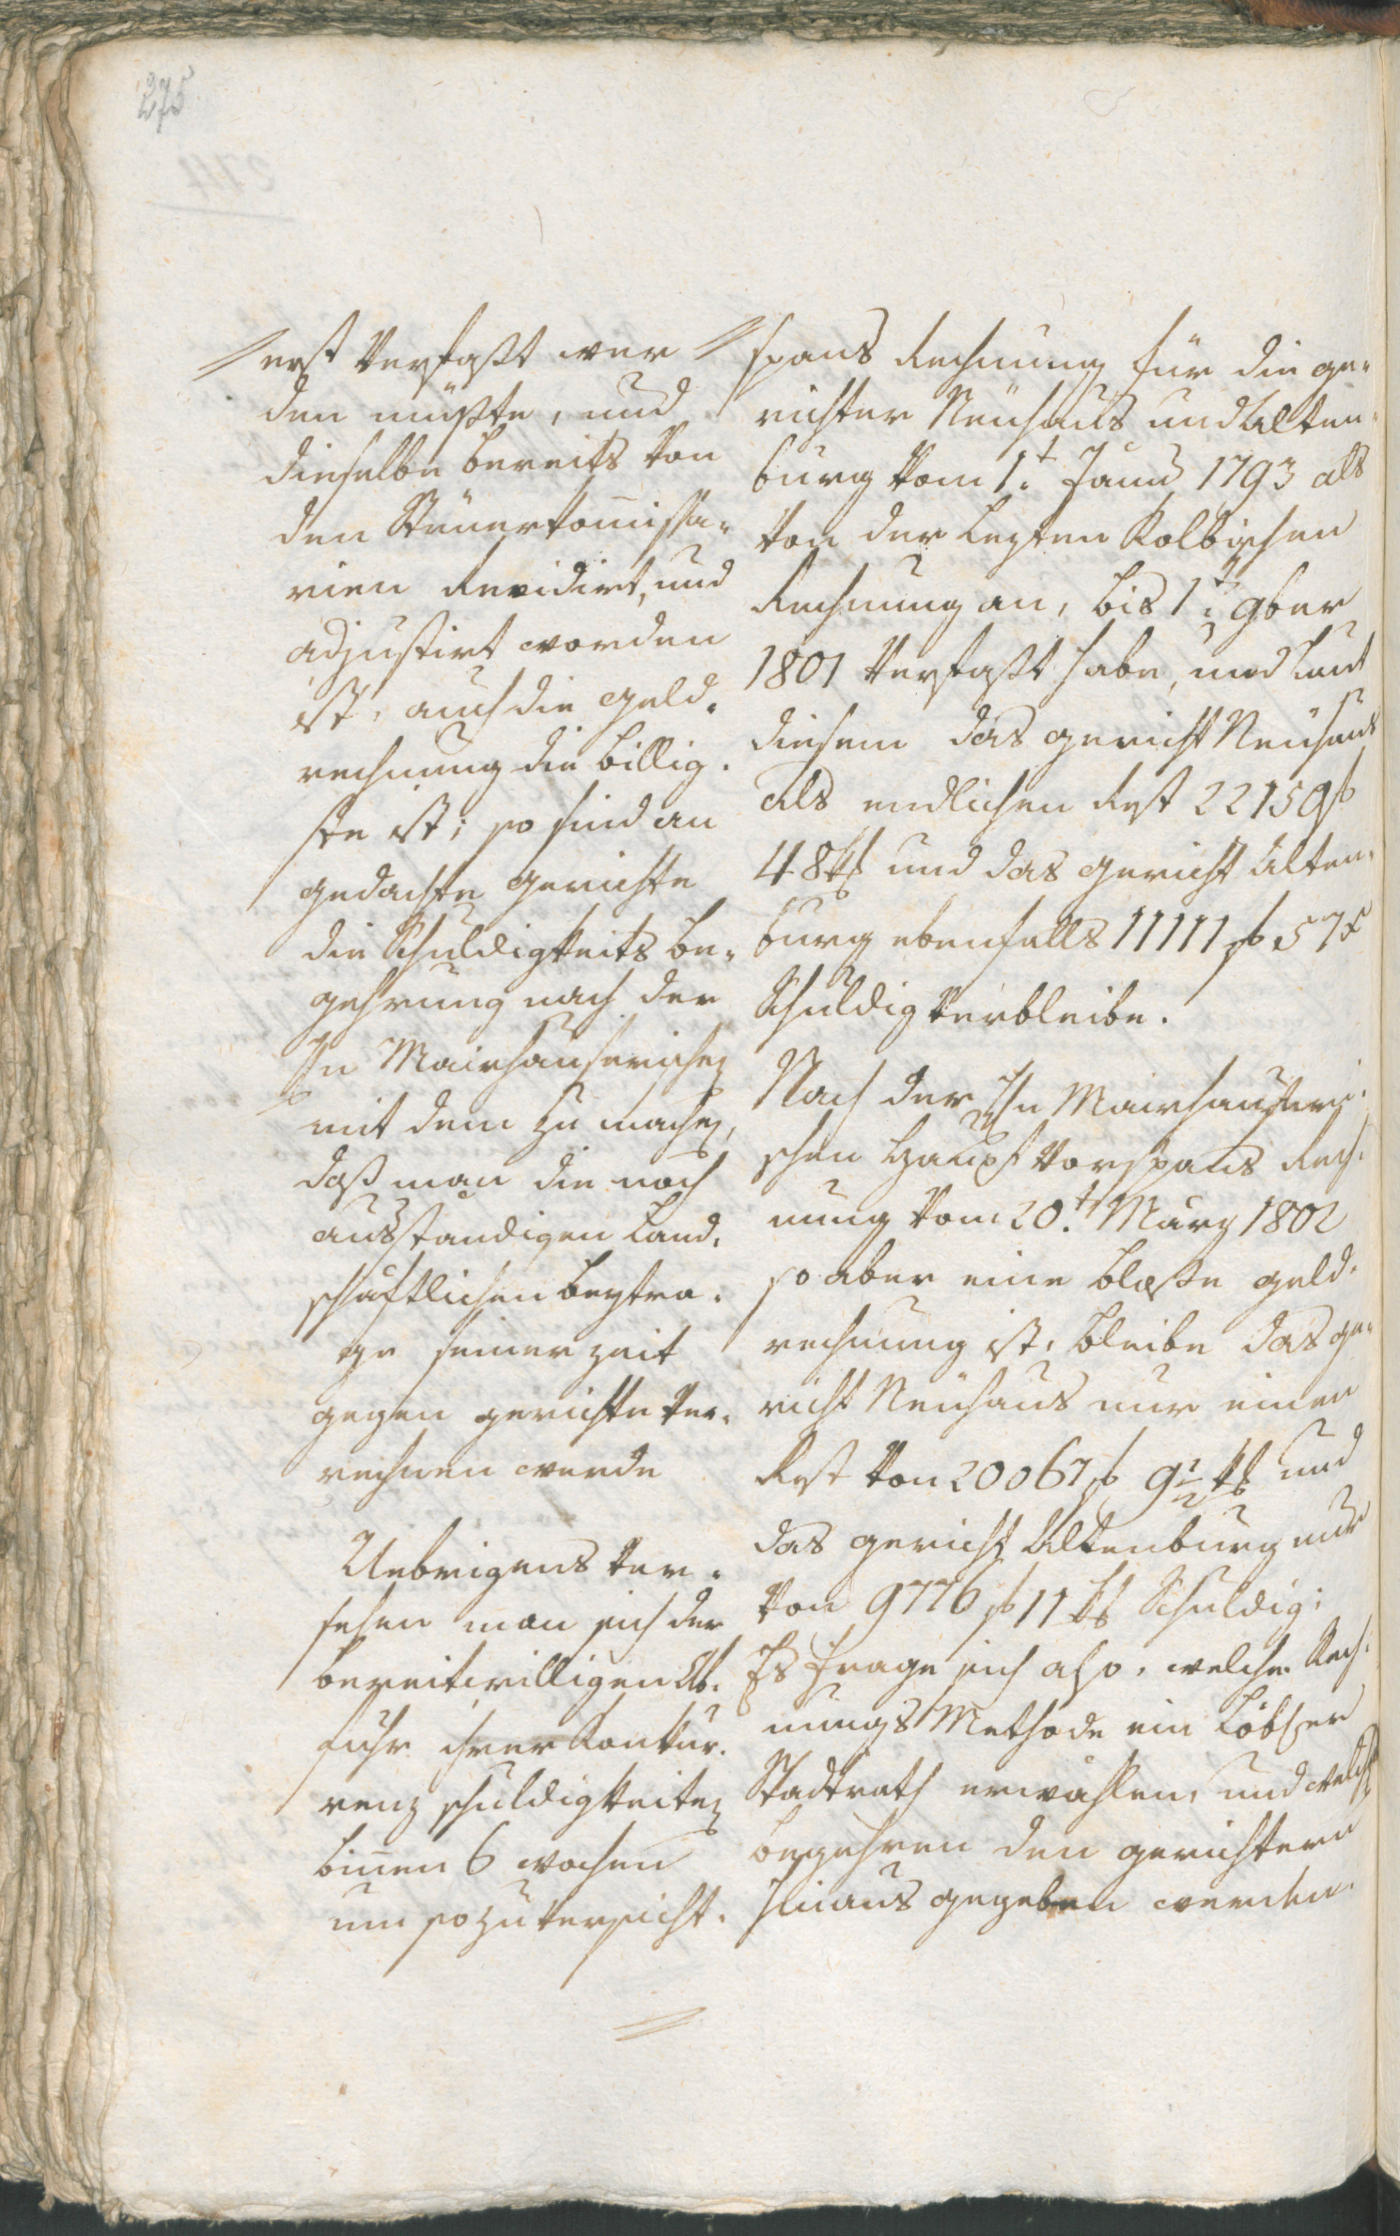 275
erst verfaßt wer
den müßte, und
dieselbe bereits von
den Steuerkom̄issa-
rien revidirt, und
adjustirt worden
ist, auch die Geld-
rechnung die billig-
ste ist; so sind an
gedachte Gerichte
die Schuldigkeits be-
gehrung nach der
In Mairhauserischen
mit dem zu machen,
daß man die noch
ausständigen Land-
schäftlichen Beyträ-
ge seiner Zeit
gegen Gerichte ver-
rechnen werde
Uebrigens ver-
sehen man sich der
bereitwilligen Ab-
fuhr ihrer Konkur-
renz schuldigkeiten
bin̄en 6 wochen
um so zuversicht-
spans Rechnung für die Ge-
richter Neuhaus und Alten-
burg vom 1t Jann 1793 als
von der lezten Kolbischen
Rechnung an, bis 1t 9ber
1801 verfaßt habe, und laut
diesem das Gericht Neuhaus
als endlichen Rest 22159 f
48 kr und das Gericht Alten-
burg ebenfalls 11111 f 57 x
Schuldig verbleibe.
Nach der In Mairhauseri-
schen Haupt Vorspans Rech-
nung vom 20t März 1802
so aber eine bloße Geld-
rechnung ist, bleibe das Ge-
richt Neuhaus nur einen
Rest von 20067 f 9½ kr und
das Gericht Altenburg nur
von 9776 f 11 kr Schuldig;
Es frage sich also, welche Rech-
nungs Methode ein Löbler
Stadtrath erwählen, und welche
begehren den Gerichtern
hinaus gegeben werden.